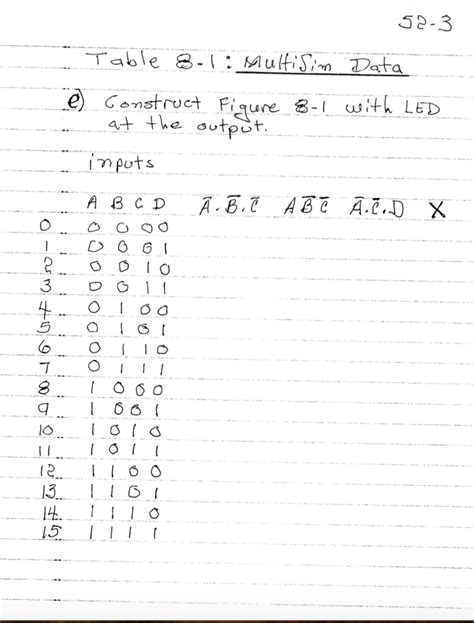 52-3
Table 8-1: MultiSim Data
e) Construct Figure 8-1 with LED
at the output.
inputs
A B C D A̅.B̅.C̅ A B̅ C̅ A̅.C̅.D X
0 0 0 0 0
1 0 0 0 1
2 0 0 1 0
3 0 0 1 1
4 0 1 0 0
5 0 1 0 1
6 0 1 1 0
7 0 1 1 1
8 1 0 0 0
9 1 0 0 1
10 1 0 1 0
11 1 0 1 1
12 1 1 0 0
13 1 1 0 1
14 1 1 1 0
15 1 1 1 1